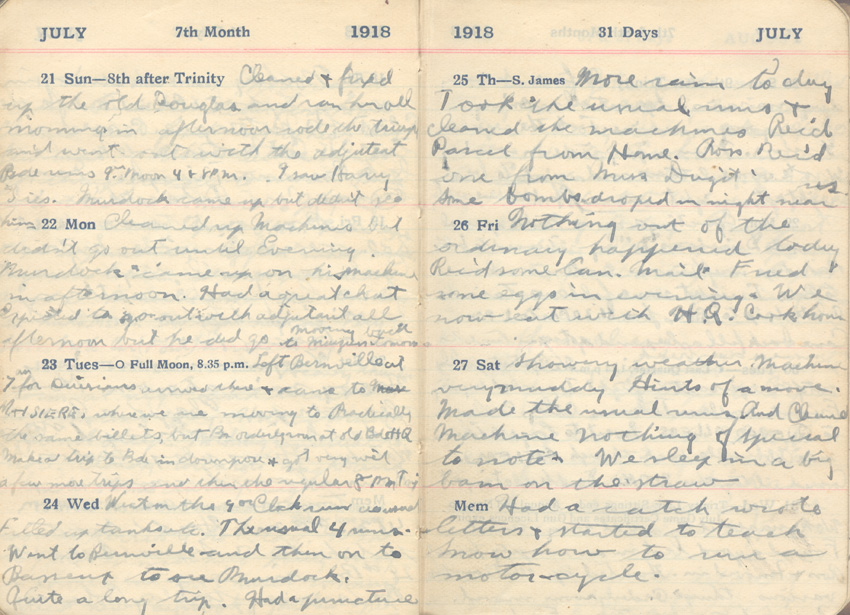 JULY 7th Month 1918
21 Sun—8th after Trinity Cleaned & fixed
up the old Douglas and ran her all
morning in afternoon rode the triump
and went out with the adjutent
Bde runs 9 am Noon 4 & 8 P.M. I saw Harry
Murdock came up but didn't see
him
22 Mon Cleaned up Machines but
didn't go out until Evening.
Murdock came up on his machine
in afternoon. Had a great chat
Expected to go out with adjutent all
afternoon but he did go moving back
to tomorrow
23 Tues—O Full Moon, 8.35 p.m. Left Bernville at
7 am for Divisions & came to
where we are moving to Practically
the same billets, but Bn orderly room at old Bde H.Q.
Make a trip to Bde in downpore & got very wet
a few more trips and then the regular 8 P.M. Trip
24 Wed Went on the 9 oClock run as usual
Filled up tanks etc. The usual 4 runs.
Went to Bernville and then on to
to see Murdock.
Quite a long trip. Had a puncture
1918 31 Days JULY
25 Th—S. James More rain to day
Took the usual runs &
cleaned the machines Rec'd
Parcel from Home. Ross Rec'd
one from Miss
Some bombs droped in night near us.
26 Fri Nothing out of the
ordinary happened today
Rec'd some Can. Mail Fried
some eggs in evening. We
now eat with H.Q. Cookhouse
27 Sat Showery weather Machine
very muddy Hints of a move.
Made the usual runs And Cleaned
Machine Nothing of special
to note. We sleep in a big
barn on the straw
Mem Had a catch wrote
letters & started to teach
Mow how to run a
motorcycle.